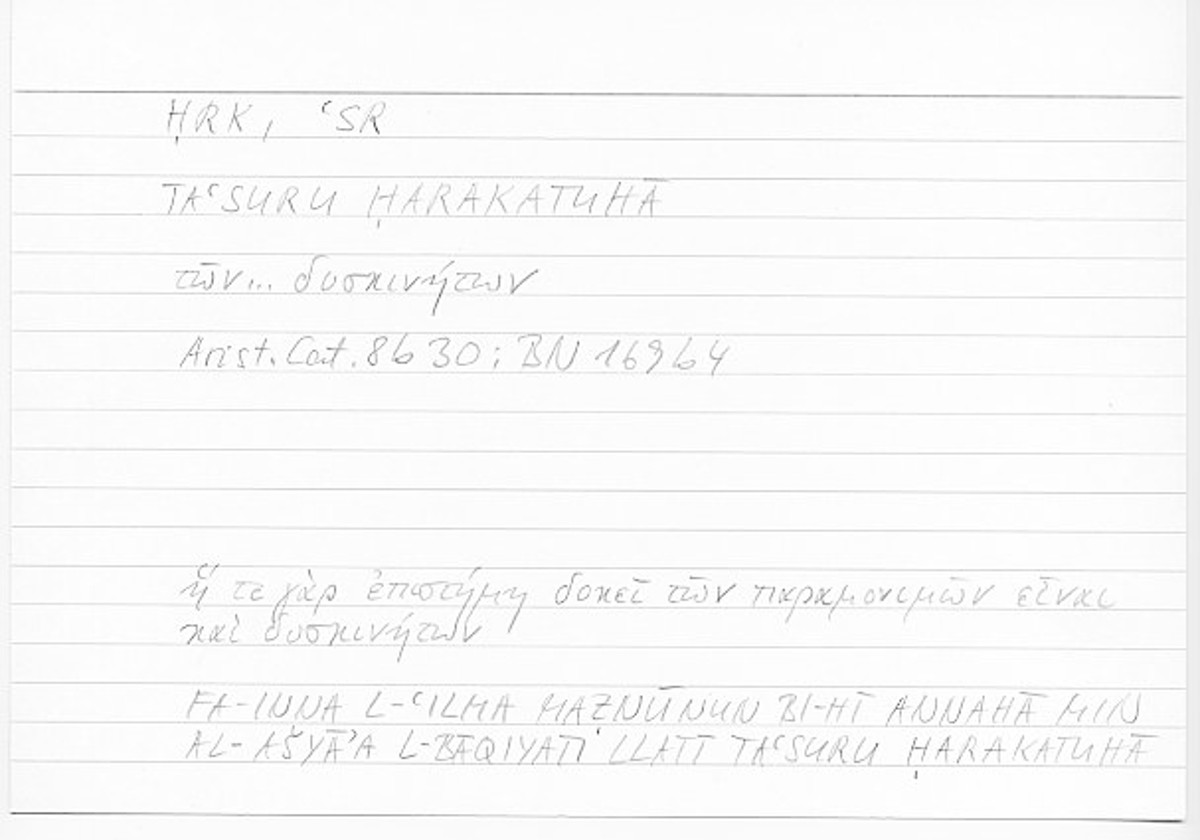 ḤRK, ʿSR
TAʿSURU ḤARAKATUHĀ
τῶν... δυσκινήτων
Arist. Cat. 8b 30; BN 16964
ἥ τε γὰρ ἐπιστήμη δοκεῖ τῶν παραμονιμῶν εἶναι
καὶ δυσκινήτων
FA-INNA L-ʿILMA MAẒNŪNUN BI-HĪ ANNAHĀ MIN
AL-AŠYĀʾA L-BĀQIYATI LLATĪ TAʿSURU ḤARAKATUHĀ